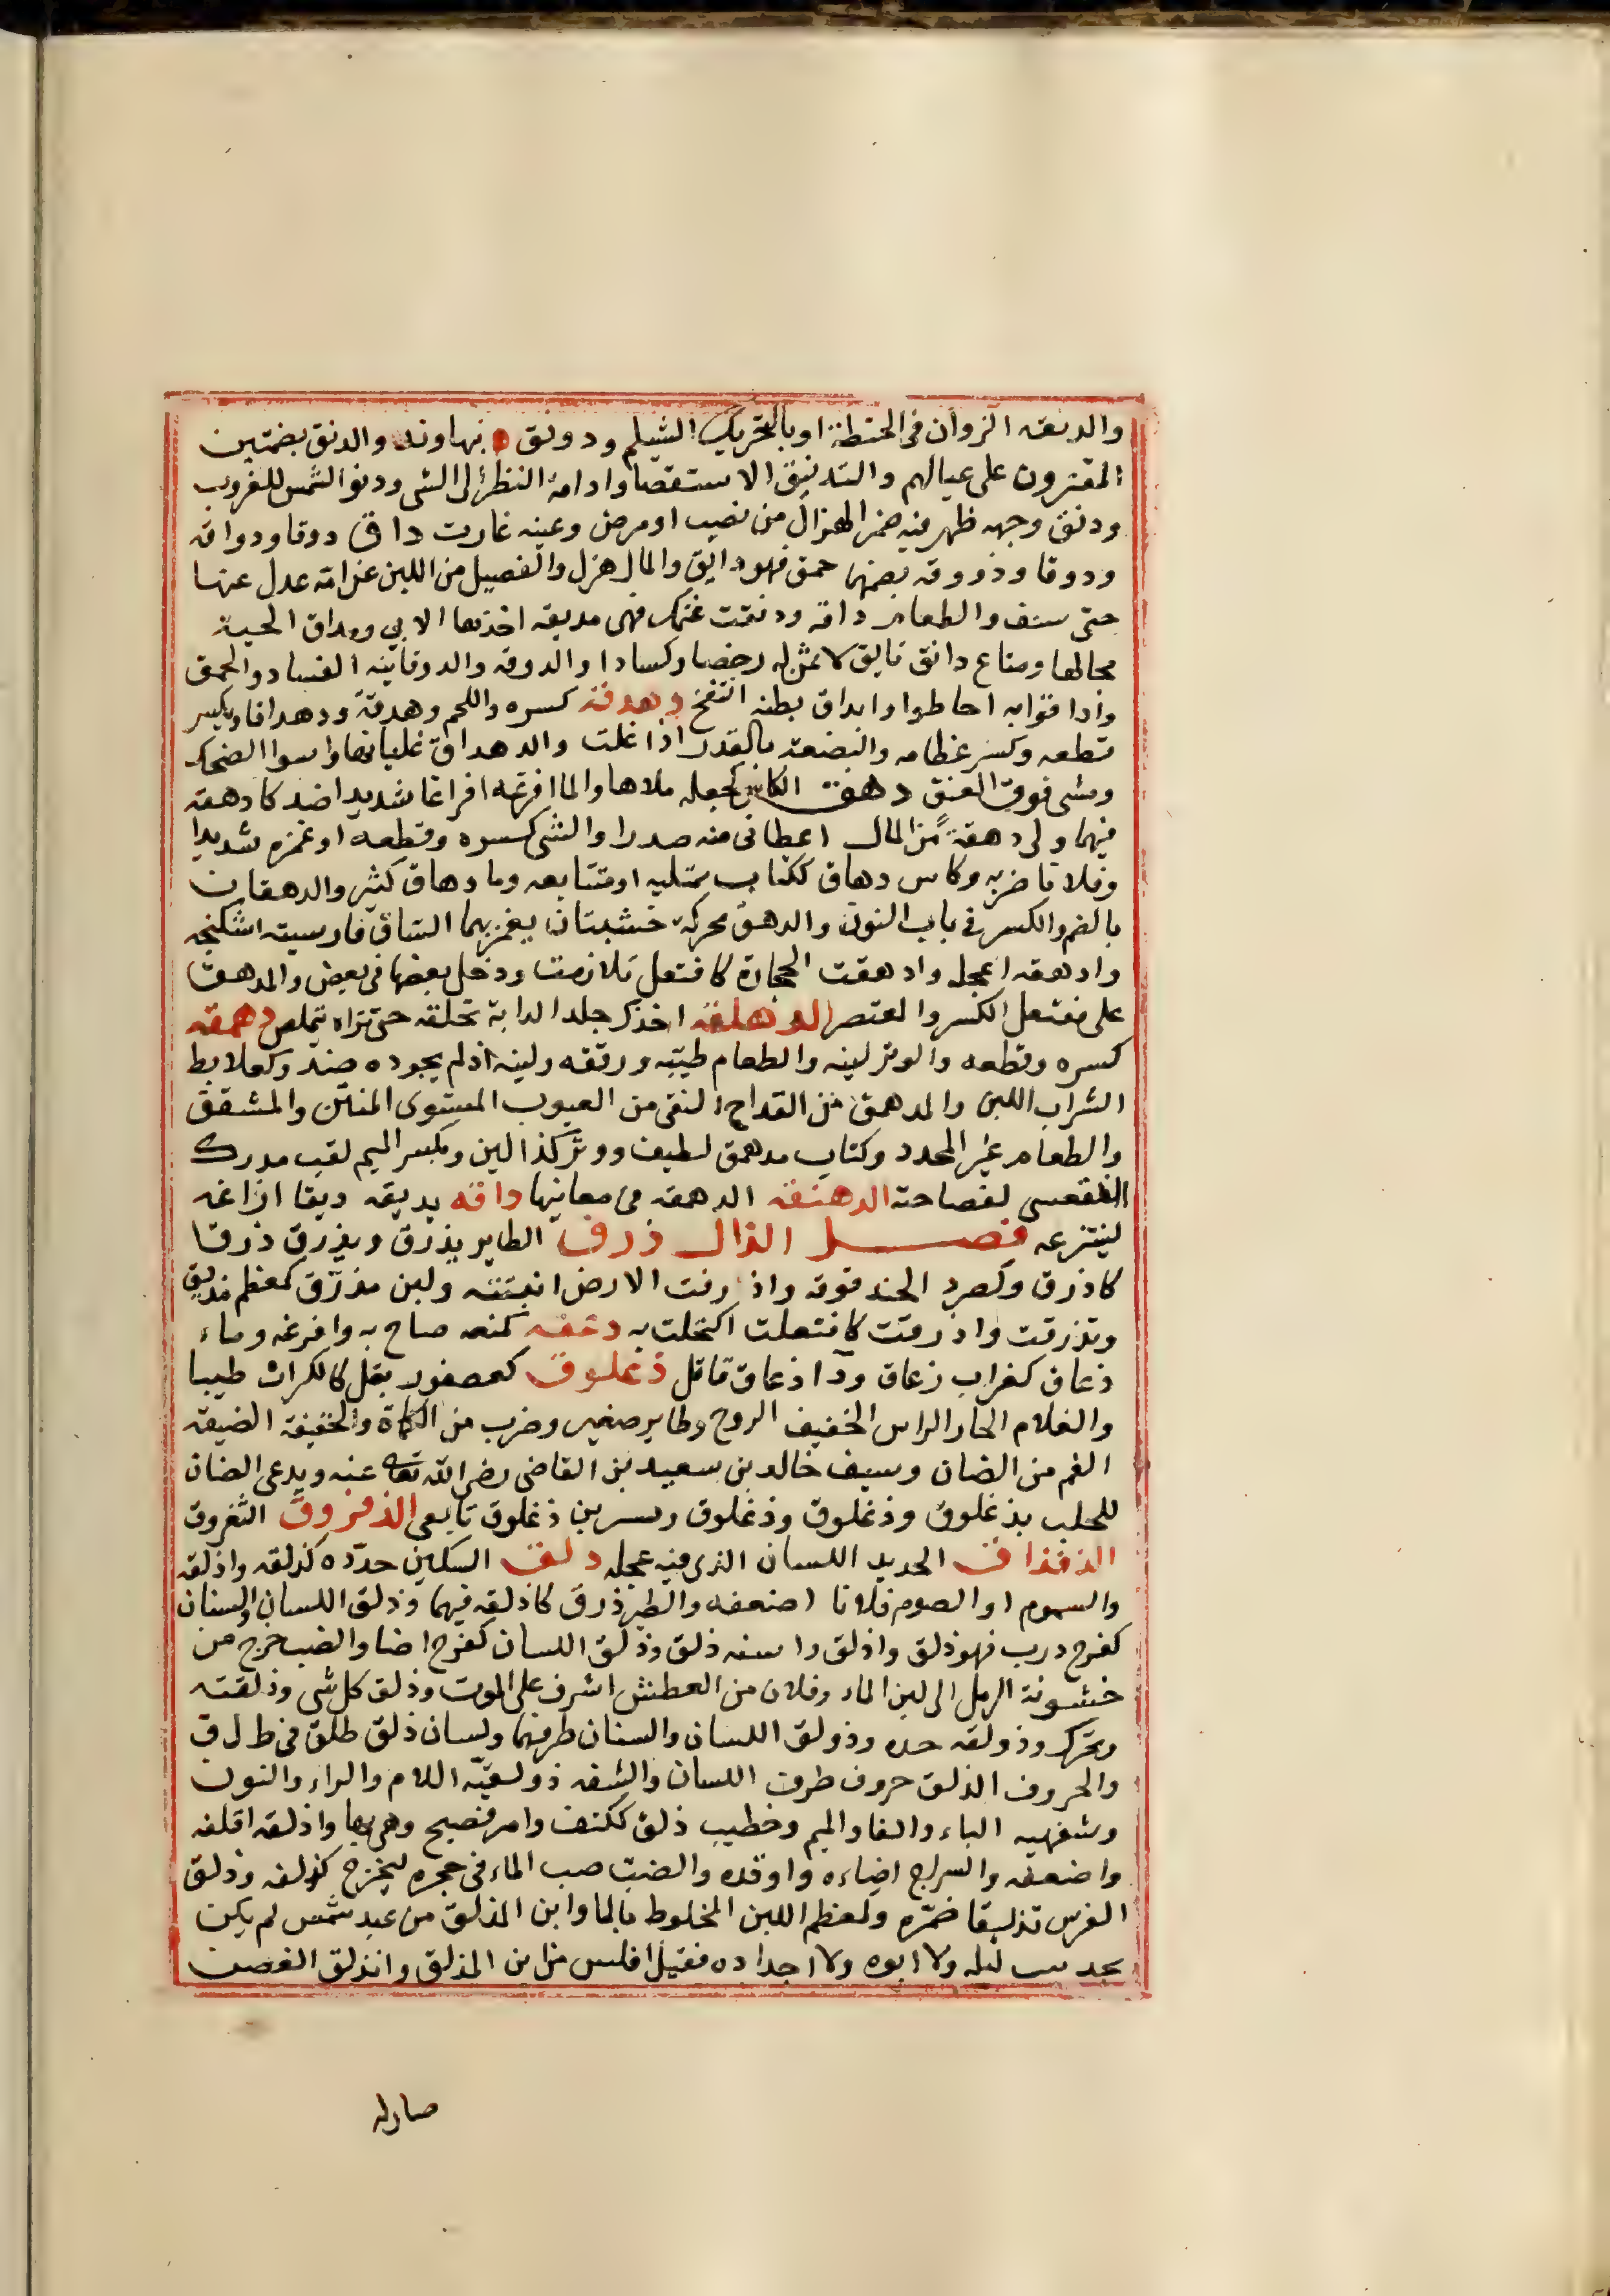 والدنقه الزوان فى الحنطة او بالتحريك الشيلم ودونق ة بنهاوند والدنق بضمتين
المقترون على عيالهم والتدنيق الاستقصا وادامة النظر الى الشى ودنو الشمس للغروب
ودنق وجهه ظهر فيه ضمر الهزال من نصب او مرض وعينه غارت داق دوقا ودواقه
ودوقا ودووقه بضمها حمق فهو دايق والمال هزل والفصيل من اللبن عن امه عدل عنها
حتى سنف والطعام داقه ودنقت غنمك فهى مديقه اخذتها الابى ومداق الحية
مجالها ومتاع دانق فايق لا ثمن له رخصا وكسادا والدوقه والدوقانيه الفساد والحمق
واداقوا به احاطوا واندلق بطنه انتفخ دهدقه كسره واللحم دهدقة ودهداقا ويكسر
قطعه وكسر عظامه والبضعة بالقدر اذا غلت والدهداق غليانها واسوا الضحك
ومشى فوق العنق دهق الكاس كجعله ملاها والما افرغه افراغا شديدا ضد كادهقه
فيهما ولى دهقة من المال اعطانى منه صدرا والشى كسره وقطعه او غمزه شديدا
وفلانا ضربه وكاس دهاق ككتاب ممتليه او متتابعه وما دهاق كثير والدهقان
بالضم والكسر فى باب النون والدهق محركة خشبتان يغمز بهما الساق فارسيته اشكنجه
وادهقه اعجله وادهقت الحجارة كافتعل تلازمت ودخل بعضها فى بعض والمدهق
على مفتعل الكسر والمعتصر الدهلقه اخذك جلد الدابة تحلقه حتى تراه يتملص دهمقه
كسره وقطعه والوتر لينه والطعام طيبه ورققه ولينه اذ لم يجوده ضد وكعلابط
الشراب اللبن والمدهمق من القداح النقى من العيوب المستوى المتين والمشقق
والطعام غير المحدد وكتاب مدهمق لطيف ووتر كذا لين وبكسر الميم لقب مدرك
الفقعسى لفصاحته الدهنقه الدهمقه فى معانيها داقه يديقه ديقا اذاغه
لينتزعه فصـــل الذال ذرق الطاير يذرق ويذرق ذرقا
كاذرق وكصرد الحندقوقه واذرقت الارض انبتته ولبن مذرق كمعظم مذيق
وتذرقت واذرقت كافتعلت اكتحلت به ذعقه كمنعه صاح به وافزعه وماء
ذعاق كغراب زعاق ودا ذعاق قاتل ذعلوق كعصفور بقل كالكراث طيبا
والغلام الحار الراس الخفيف الروح وطاير صغير وضرب من الكماة والخفيفة الضيقه
الفم من الضان وسيف خالد بن سعيد بن القاضى رضى الله تعالى عنه ويدعى الضان
للحلب بذعلوق وذعلوق وذعلوق وبسر بن ذعلوق تابعى الذفروق الثفروق
الذقذاق الحديد اللسان الذى فيه عجله ذلق السكين حدده كذلقه واذلقه
والسموم او الصوم فلانا اضعفه والطير ذرق كاذلقه فيهما وذلق اللسان والسنان
كفرح درب فهو ذلق واذلق واسنه ذلق وذلق اللسان كفرح اضا والضب خرج من
خشونة الرمل الى لين الماء وفلان من العطش اشرف على الموت وذلق كل شى وذلقته
وتحرك وذولقه حده وذولق اللسان والسنان طرفهما ولسان ذلق طلق فى ط ل ق
والحروف الذلق حروف طرف اللسان والشفه ذولقيه اللام والراء والنون
وشفهيه الباء والفا والميم وخطيب ذلق ككتف وامر فصيح وهى بها واذلقه اقلقه
واضعفه والسراج اضاءه واوقده والضب صب الماء فى حجره ليخرج كذلقه وذلق
الفرس تذليقا ضمره وكمعظم اللبن المخلوط بالما وابن المذلق من عبد شمس لم يكن
يجد بيت ليله ولا ابوه ولا اجداده فقيل افلس من ابن المذلق وانذلق الغصن
صار له